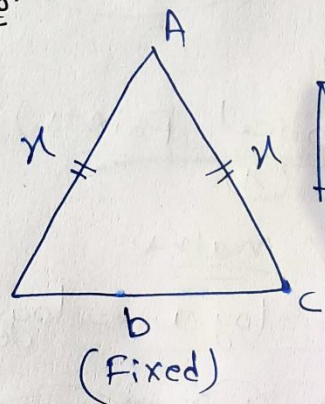 A
x x
C
b
(Fixed)